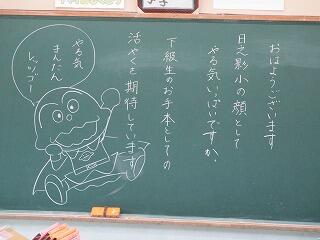 おはようございます
日之影小の顔として
やる気いっぱいですか、
下級生のお手本としての
活やくを期待しています
やる気
まんたん
レッツゴー